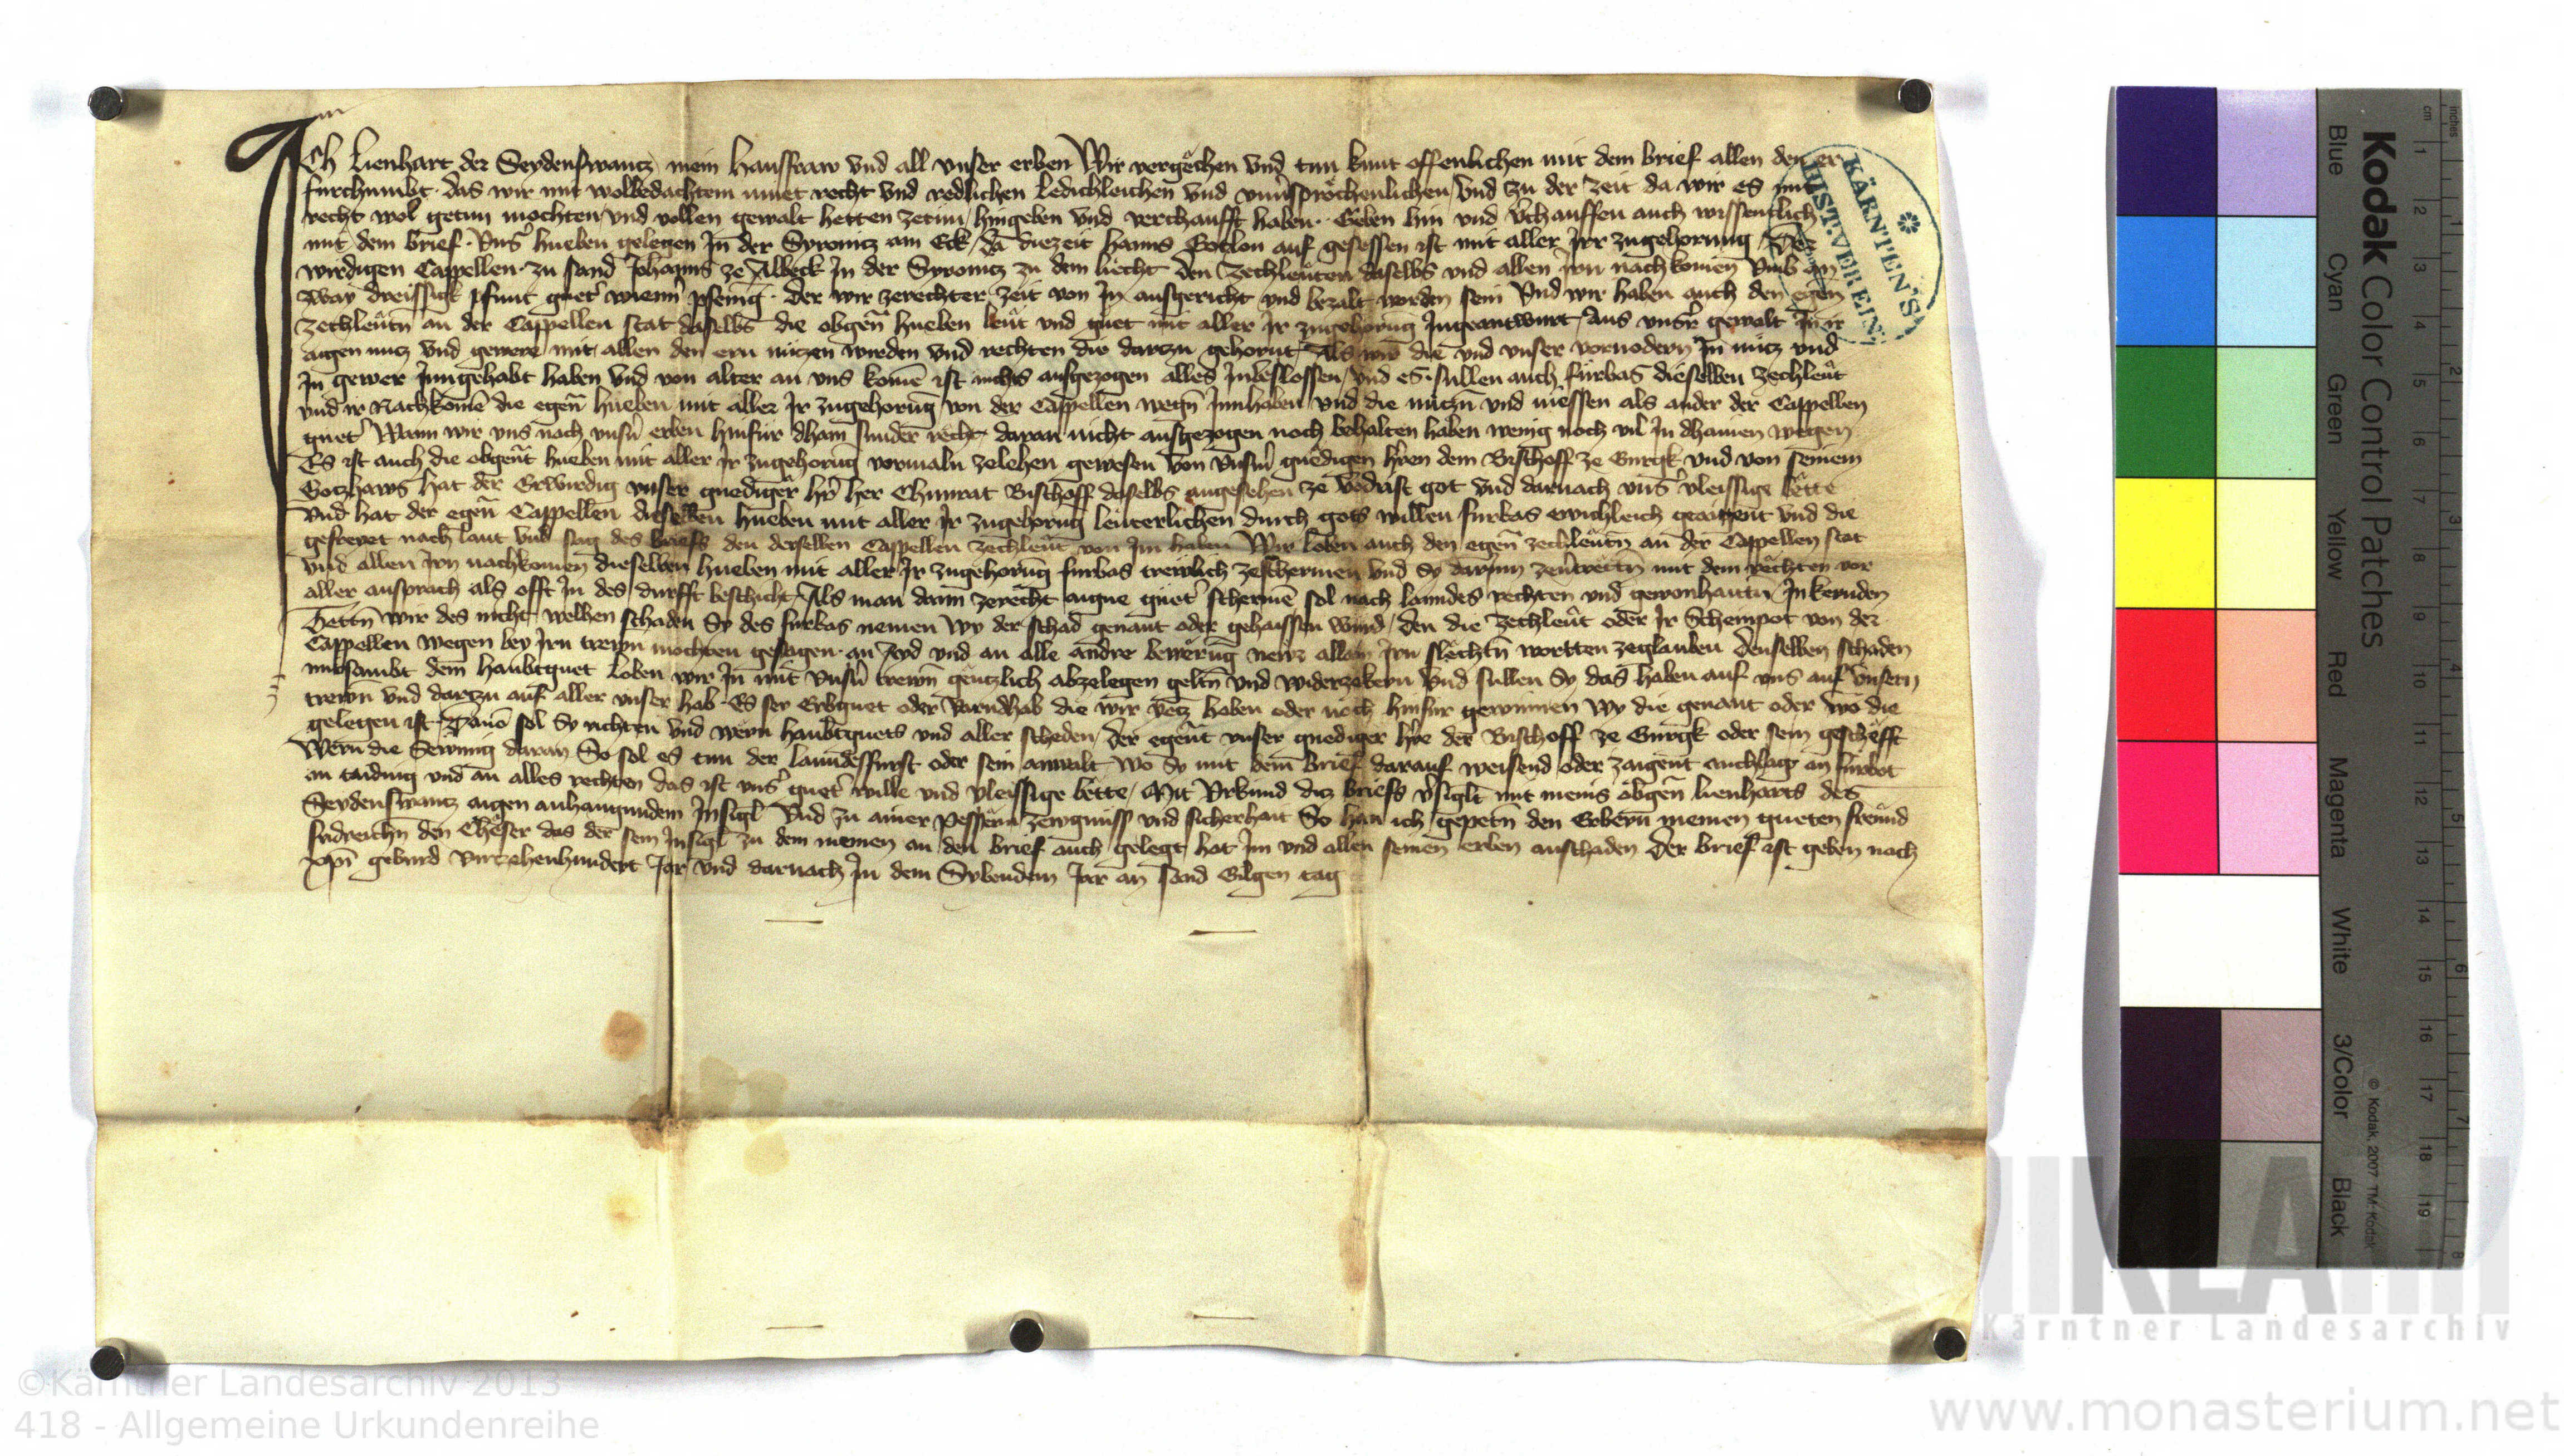 Ich Lienhart der Seydenswancz mein Hausfraw vnd all vnser erben Wir vergechen vnd tun kunt offenlichen mit dem brief allen den er
furchumbt das wir mit wolbedachtem muet recht vnd redlichen ledichleichen vnd vnuersprochenlichen vnd zu der zeit da wir es mit
recht wol getun mochten vnd vollen gewalt hetten zetun hingeben vnd verchaufft haben Geben hin vnd vchauffen auch wissentlich
mit dem brief vns hueben gelegen In der Syronicz am Eck da diezeit Hanns auf gesessen ist mit aller Irr zugehorung Der
wirdigen Cappellen zu sand Johanns ze Albeck In der Syronicz zu dem liecht den Zechleuten daselbs vnd allen Irn nachkomen vmb an
zway dreissigk pfunt guet wienn pfenig der wir zerechter zeit von In ausgericht vnd bezalt worden sein Vnd wir haben auch den egen
zechleutn an der Cappellen stat daselbs die obgen hueben leut vnd guet mit aller Ir zugehorug Ingeantwurt Aus vnsr gewalt In ir
aigen nucz vnd gewere mit allen den ern nuczen wirden vnd rechten die darczu gehornt Als wir die vnd vnser vornodern In nucz vnd
In gewer Inngehabt haben vnd von alter an vns kome ist nichts ausgezogen alles Inbeslossen vnd es sullen auch furbas dieselben zechleut
vnd ir Nachkome die egen hueben mit aller Ir zugehorug von der Cappellen wegn Innhaben vnd die nuczn vnd niessen als ander der Cappellen
guet Wann wir vns nach vnsn erben hinfur dham sunder recht daran nicht ausgezogen noch behalten haben wenig noch vil In dhainen wegen
Es ist auch die obgent hueben mit aller Ir zugehorug vormaln zelehen gewesen von vnsm gnedigen hren dem Bischoff ze Gurgk vnd von seinem
Gotzhaws hat der Erwirdig vnser gnediger hr her Chunrat Bischoff daselbs angesehen ze vodrist got vnd darnach vns vleissige bette
Vnd hat der egen Cappellen dieselben hueben mit aller Ir zugehorug leuterlichen durch gots willen furbas ewichleich geaigent vnd die
gefreyet nach laut vnd sag des briefs den derselben Cappellen zechleut von Im haben Wir loben auch den egen zechleutn an der Cappellen stat
vnd allen Irn nachkomen dieselben hueben mit aller Ir zugehorug furbas trewlich zeschermen vnd Sy darinn mit dem rechten vor
aller ansprach als offt In des durfft beschicht Als man dann zerecht aigne guet scherme sol nach lanndes rechten vnd gewonhaitn In kernden
Tettn wir des nicht welhen schaden Sy des furbas nemen wy der schad genant oder gehaissen wurd den die zechleut oder Ir Scheinpot von der
Cappellen wegen bey Irn trewn mochten gesagen an Ayd vnd an alle andre bewerug newr allain Irn slechtn wortten zeglauben denselben schaden
mitsambt dem haubtguet loben wir In mit vnsn trewn genczlich abzelegen geltn vnd widerzekern vnd sullen Sy das haben auf vns auf vnsern
trewn vnd darczu auf aller vnser hab Es sey Erbguet oder varundhab die wir yetz haben oder noch hinfur gewinnen wy die genant oder wo die
gelegen ist Dauo sol Sy richten vnd wern haubtguets vnd aller scheden Der egent vnser gnediger hre der Bischoff ze Gurgk oder sein gescheft
Wern die Sewmig daran So sol es tun der lanndesfurst oder sein anwalt wo Sy mit dem brief darauf weisend oder zaigent anchlag an furbot
an taiding vnd an alles rechten das ist vns guet wille vnd vleissige bette Mit Vrkund dicz briefs vsiglt mit meins obgen lienharts des
Seydenswancz aigen anhangundem Insigl Vnd zu ainer pessern zewgnuss vnd sicherhait So han ich gepetn den Erbern meinen gueten freund
fridreichn den Cheser das der sein Insigl zu dem meinen an den brief auch gelegt hat Im vnd allen seinen erben anschaden Der brief ist geben nach
xpi geburd virczehenhundert Jar vnd darnach In dem Sybendem Jar an sand Gilgen tag
KÄRNTEN'S
HIST.VEREIN
Kodak Color Control Patches
Blue Cyan Green Yellow Red Magenta White 3/Color Black
© Kodak, 2007 TM: Kodak
cm 1 2 3 4 5 6 7 8 9 10 11 12 13 14 15 16 17 18 19
inches 1 2 3 4 5 6 7 8
KLA
Kärntner Landesarchiv
©Kärntner Landesarchiv 2013
418 - Allgemeine Urkundenreihe
www.monasterium.net